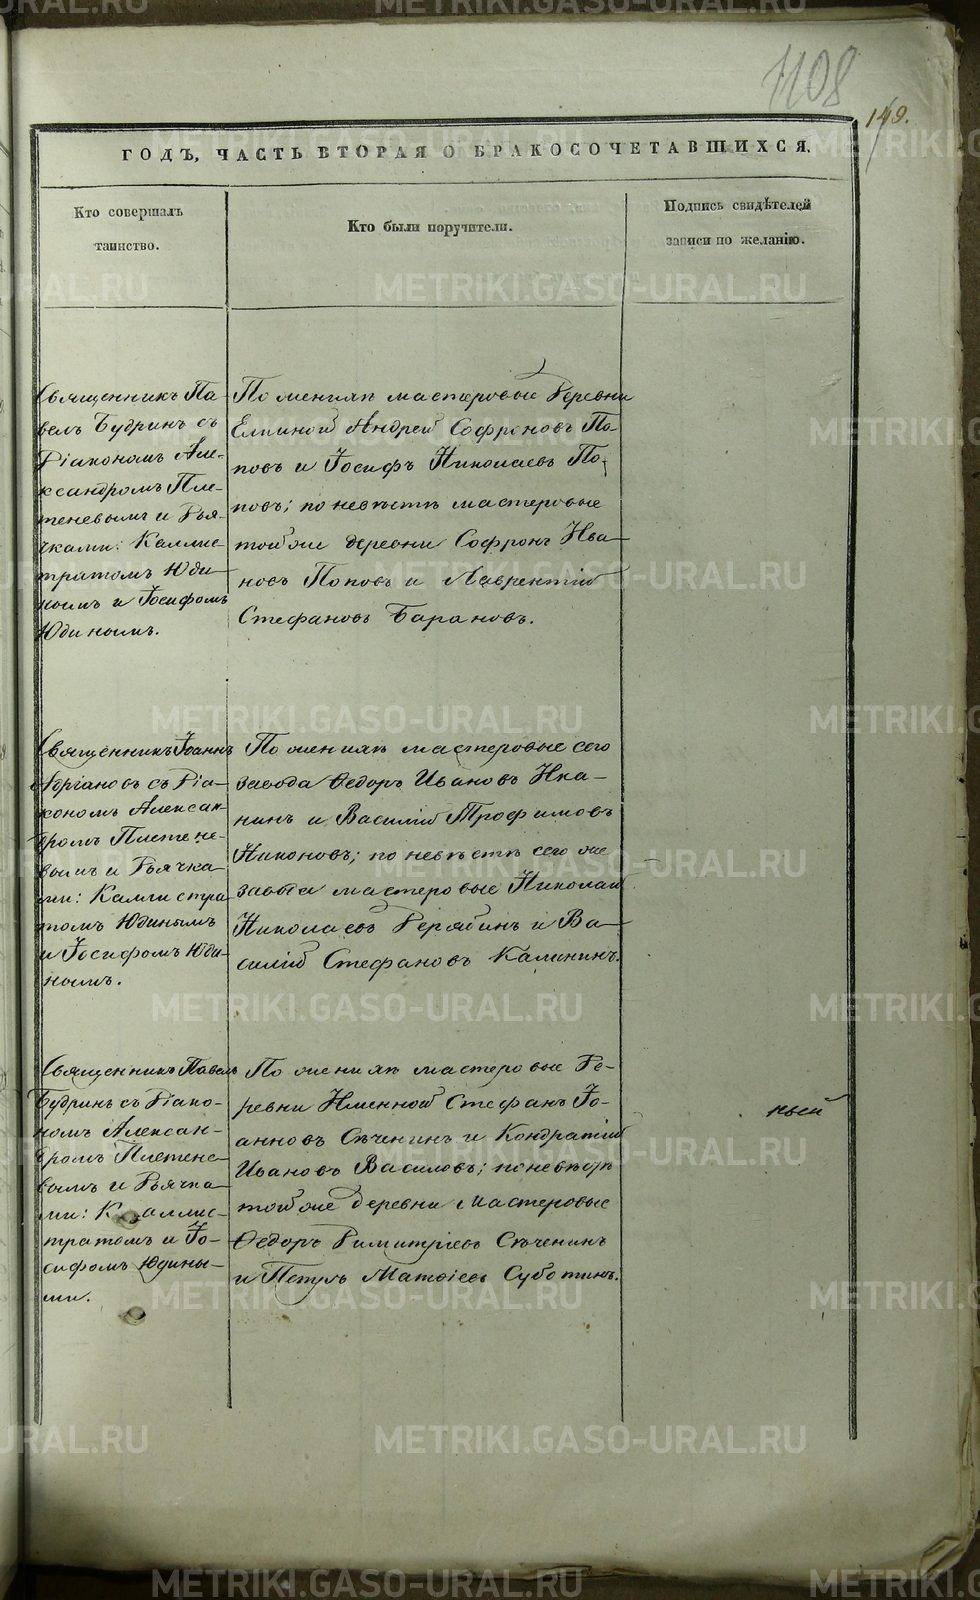 1108
149.
ГОДЪ, ЧАСТЬ ВТОРАЯ О БРАКОСОЧЕТАВШИХСЯ.
Кто совершалъ
таинство.
Кто были поручители.
Подпись свидѣтелей
записи по желанію.
Священникъ Па-
велъ Будринъ съ
Діакономъ Але-
ксандромъ Пле-
теневымъ и Дья-
чками: Каллис-
тратомъ Юди-
нымъ и Іосифомъ
Юдинымъ.
По женихѣ мастеровые деревни
Елкиной Андрей Софроновъ По-
повъ и Іосифъ Николаевъ По-
повъ; по невѣстѣ мастеровые
той же деревни Софронъ Ива-
новъ Поповъ и Лаврентій
Стефановъ Барановъ.
Священникъ Іоаннъ
Адріановъ съ Діа-
кономъ Алексан-
дромъ Плетене-
вымъ и Дьячка-
ми: Каллистра-
томъ Юдинымъ
и Іосифомъ Юди-
нымъ.
По женихѣ мастеровые сего
завода Ѳедоръ Ивановъ Ика-
нинъ и Василій Трофимовъ
Никоновъ; по невѣстѣ сего же
завода мастеровые Николай
Николаевъ Дерябинъ и Ва-
силій Стефановъ Калининъ.
Священникъ Павелъ
Будринъ съ Діако-
номъ Алексан-
дромъ Плетене-
вымъ и Дьячка-
ми: Каллис-
тратомъ и Іо-
сифомъ Юдины-
ми.
По женихѣ мастеровые де-
ревни Именной Стефанъ Іо-
анновъ Сѣченинъ и Кондратій
Ивановъ Василовъ; по невѣстѣ
той же деревни мастеровые
Ѳедоръ Димитріевъ Сѣченинъ
и Петръ Матѳіевъ Суботинъ.
ный
METRIKI.GASO-URAL.RU